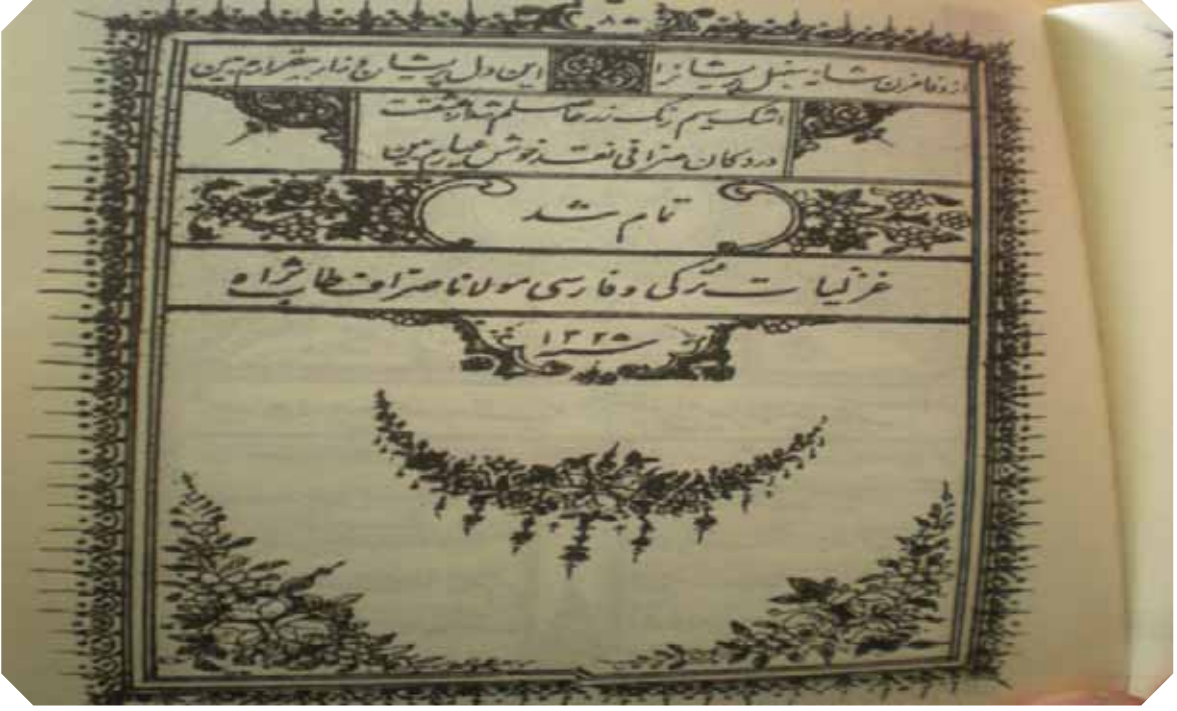 ۸۵
از وفا مزن شانه سنبل پریشانرا این دل پریشان زار بیقرارم بین
اشک سیم رنگ زر حاصلم شد از عشقت
در دکان صرافی نقد خوش عیارم بین
تمام شد
غزلیات ترکی و فارسی مولانا صراف طاب ثراه
سنه ۱۳۲۵